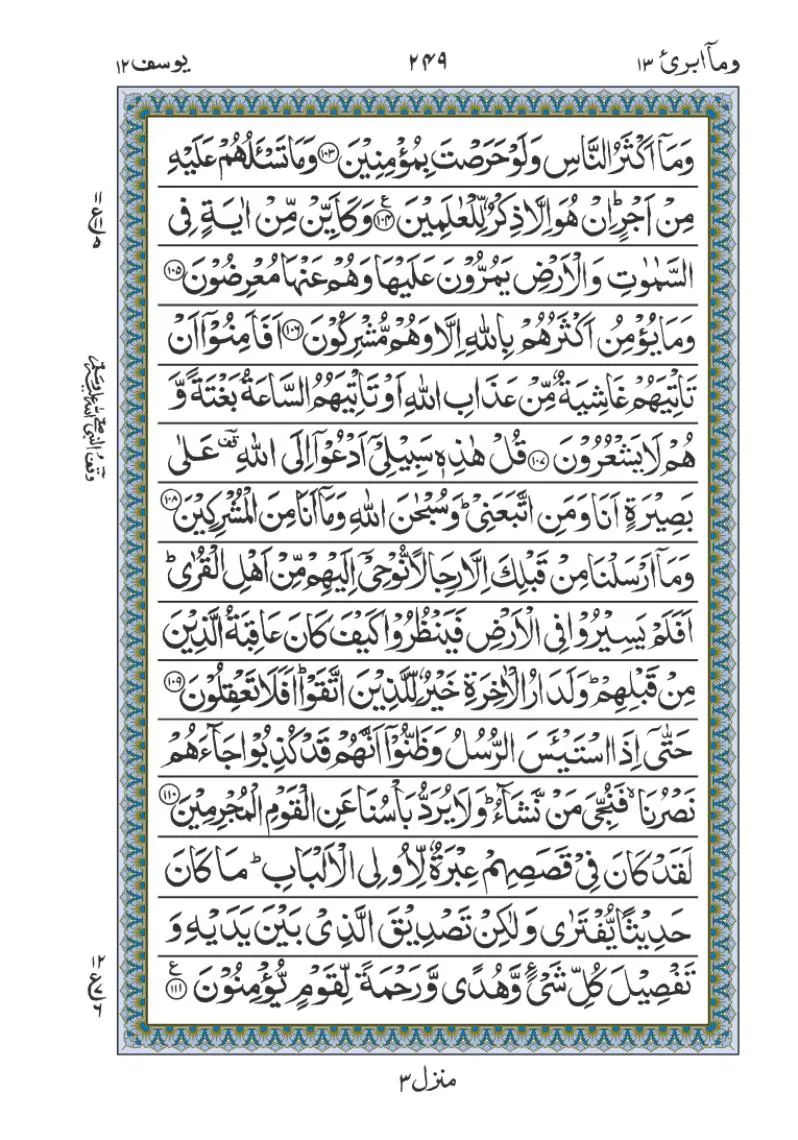 ومآ ابرئ ١٣
٢٤٩
يوسف ١٢
وَمَآ اَكْثَرُ النَّاسِ وَلَوْ حَرَصْتَ بِمُؤْمِنِيْنَ ۝١٠٣ وَمَا تَسْـَٔلُهُمْ عَلَيْهِ
مِنْ اَجْرٍ ؕ اِنْ هُوَ اِلَّا ذِكْرٌ لِّلْعٰلَمِيْنَ ۝١٠٤ ع وَكَاَيِّنْ مِّنْ اٰيَةٍ فِى
السَّمٰوٰتِ وَالْاَرْضِ يَمُرُّوْنَ عَلَيْهَا وَهُمْ عَنْهَا مُعْرِضُوْنَ ۝١٠٥
وَمَا يُؤْمِنُ اَكْثَرُهُمْ بِاللّٰهِ اِلَّا وَهُمْ مُّشْرِكُوْنَ ۝١٠٦ اَفَاَمِنُوْٓا اَنْ
تَاْتِيَهُمْ غَاشِيَةٌ مِّنْ عَذَابِ اللّٰهِ اَوْ تَاْتِيَهُمُ السَّاعَةُ بَغْتَةً وَّ
هُمْ لَا يَشْعُرُوْنَ ۝١٠٧ قُلْ هٰذِهٖ سَبِيْلِىْٓ اَدْعُوْٓا اِلَى اللّٰهِ ؔقف عَلٰى
بَصِيْرَةٍ اَنَا وَمَنِ اتَّبَعَنِىْ ؕ وَسُبْحٰنَ اللّٰهِ وَمَآ اَنَا مِنَ الْمُشْرِكِيْنَ ۝١٠٨
وَمَآ اَرْسَلْنَا مِنْ قَبْلِكَ اِلَّا رِجَالًا نُّوْحِىْٓ اِلَيْهِمْ مِّنْ اَهْلِ الْقُرٰى ؕ
اَفَلَمْ يَسِيْرُوْا فِى الْاَرْضِ فَيَنْظُرُوْا كَيْفَ كَانَ عَاقِبَةُ الَّذِيْنَ
مِنْ قَبْلِهِمْ ؕ وَلَدَارُ الْاٰخِرَةِ خَيْرٌ لِّلَّذِيْنَ اتَّقَوْا ؕ اَفَلَا تَعْقِلُوْنَ ۝١٠٩
حَتّٰىٓ اِذَا اسْتَيْـَٔسَ الرُّسُلُ وَظَنُّوْٓا اَنَّهُمْ قَدْ كُذِبُوْا جَآءَهُمْ
نَصْرُنَا ۙ فَنُجِّىَ مَنْ نَّشَآءُ ؕ وَلَا يُرَدُّ بَاْسُنَا عَنِ الْقَوْمِ الْمُجْرِمِيْنَ ۝١١٠
لَقَدْ كَانَ فِىْ قَصَصِهِمْ عِبْرَةٌ لِّاُولِى الْاَلْبَابِ ؕ مَا كَانَ
حَدِيْثًا يُّفْتَرٰى وَلٰكِنْ تَصْدِيْقَ الَّذِىْ بَيْنَ يَدَيْهِ وَ
تَفْصِيْلَ كُلِّ شَىْءٍ وَّهُدًى وَّرَحْمَةً لِّقَوْمٍ يُّؤْمِنُوْنَ ۝١١١ ع
منزل ٣